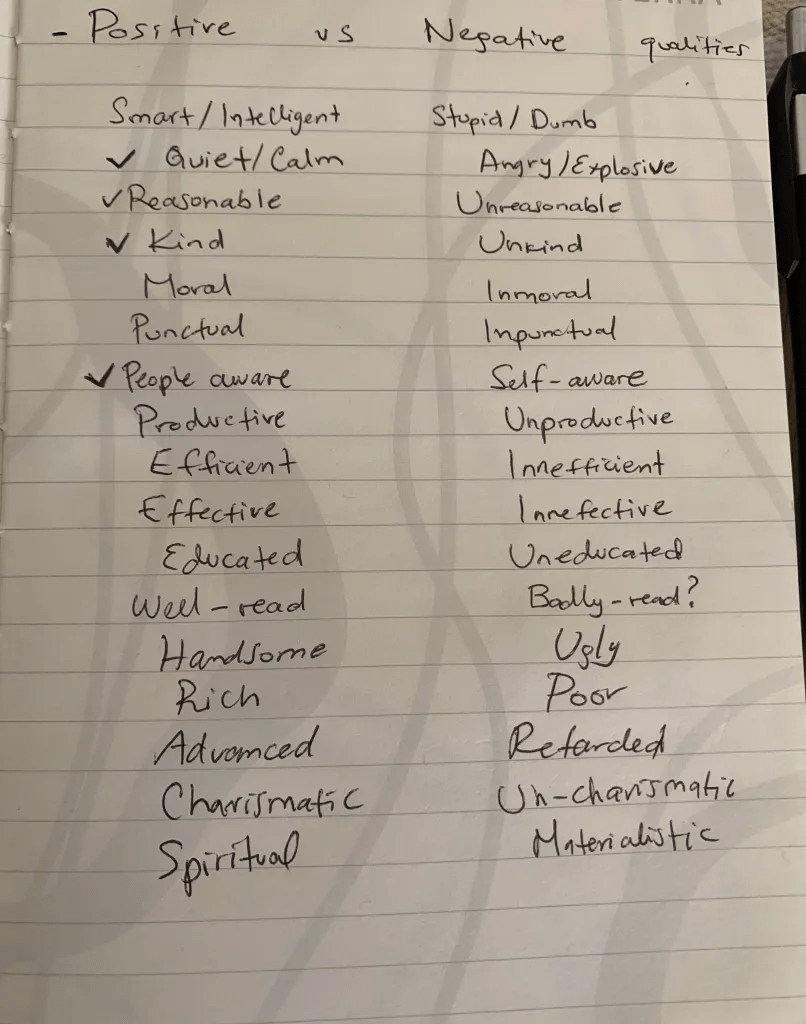 - Positive vs Negative qualities
Smart/Intelligent Stupid/Dumb
✓ Quiet/Calm Angry/Explosive
✓ Reasonable Unreasonable
✓ Kind Unkind
Moral Inmoral
Punctual Inpunctual
✓ People aware Self-aware
Productive Unproductive
Efficient Innefficient
Effective Innefective
Educated Uneducated
Well-read Badly-read?
Handsome Ugly
Rich Poor
Advanced Retarded
Charismatic Un-charismatic
Spiritual Materialistic